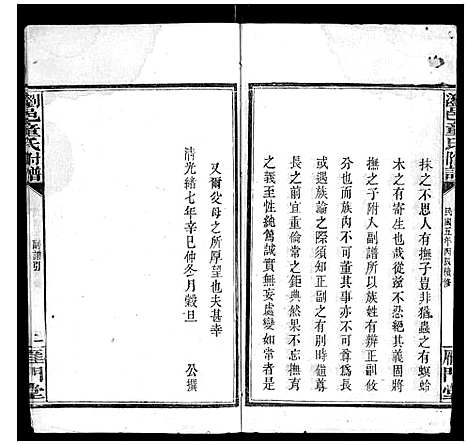 瀏邑童氏附譜
民國五年丙辰續修
雁門堂
抹之不思人有撫子豈非猶蟲之有螟蛉
木之有寄生也哉從茲不忍絕其義固將
撫之子附人副譜所以族姓有辨正副有
分也而族內不可薰其事亦不可尊為長
遇族論之際須知正副之有別有時植尊
長之前宜重倫常之鉅典然果不失焉有
之者又且性純篤誠實無妄處變如常者
又爾父母之所厚望也夫甚幸
清光緒七年辛巳仲冬月穀旦
公撰
瀏邑童氏附譜
副譜引
上
雁門堂